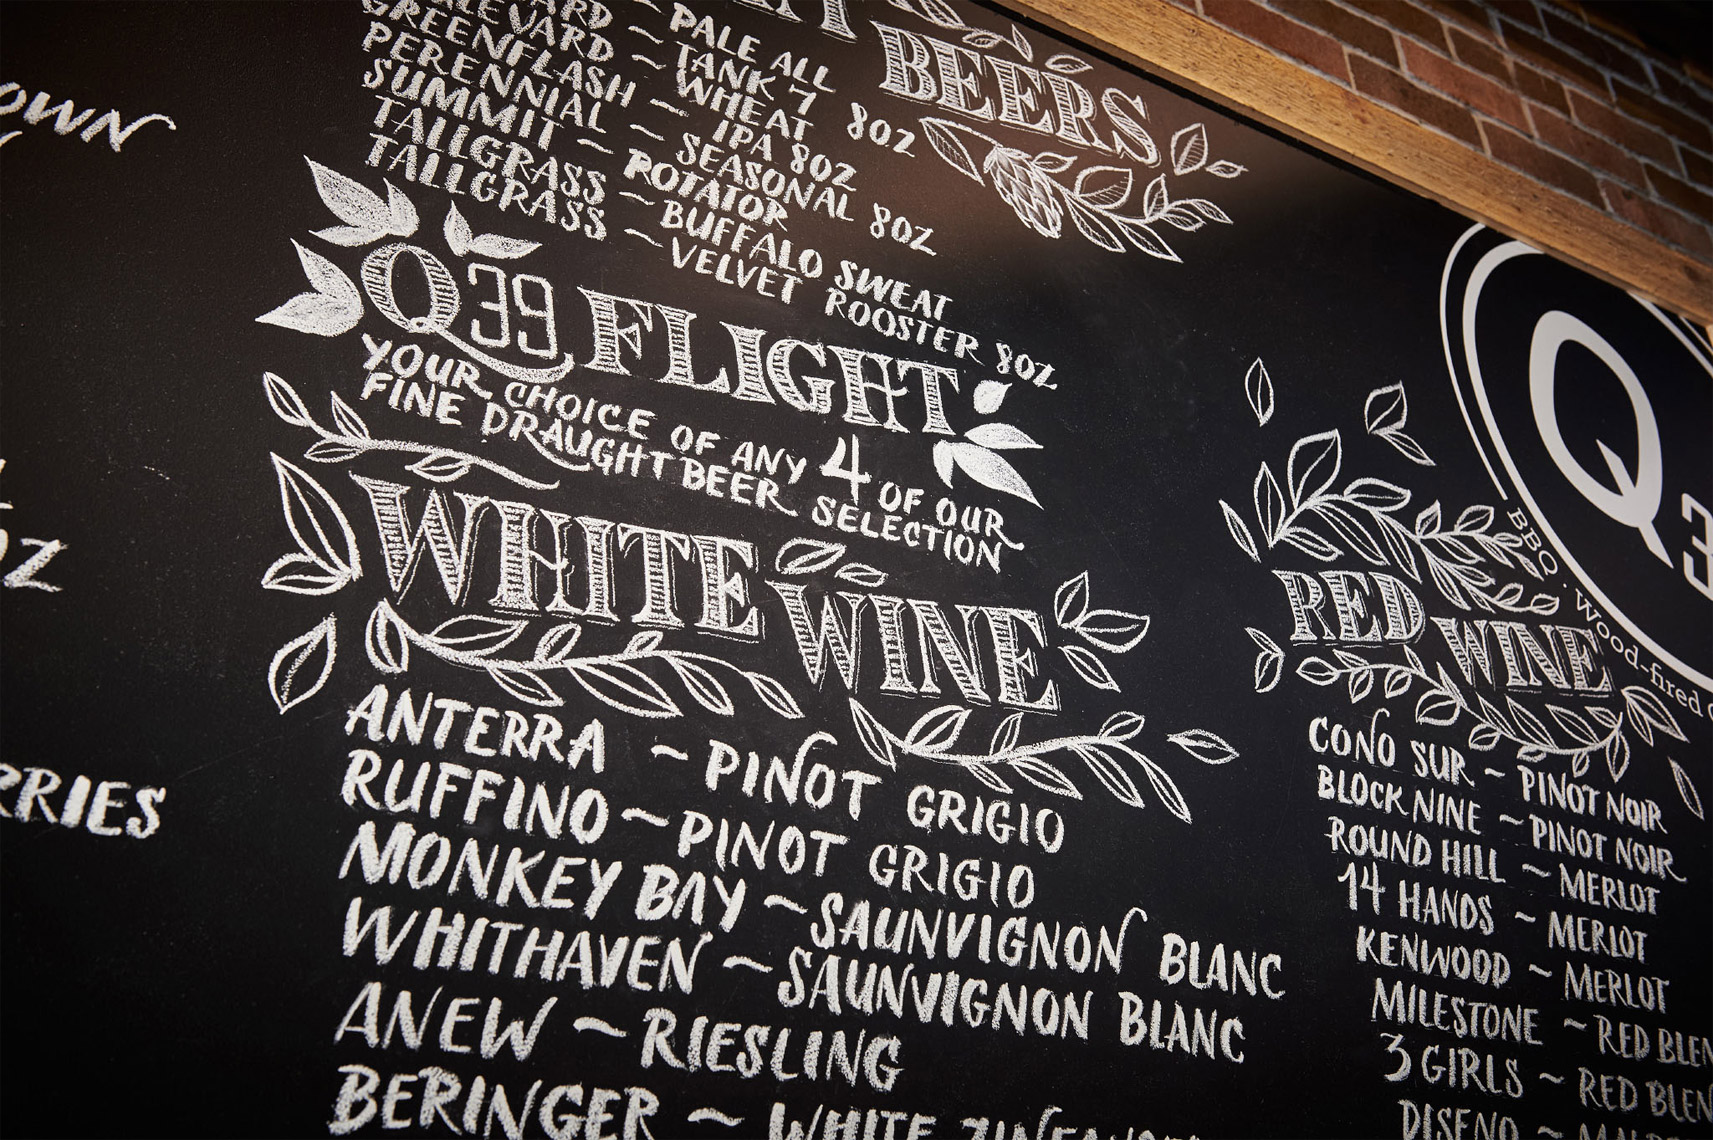 OWN
OZ
RRIES
BEERS
PALE ALL
TANK 7 8OZ
GREENFLASH ~ WHEAT
PERENNIAL ~ IPA 8OZ
SUMMIT ~ SEASONAL 8OZ
TALLGRASS ~ ROTATOR
TALLGRASS ~ BUFFALO SWEAT
VELVET ROOSTER 8OZ
Q39 FLIGHT
YOUR CHOICE OF ANY 4 OF OUR
FINE DRAUGHT BEER SELECTION
WHITE WINE
ANTERRA ~ PINOT GRIGIO
RUFFINO ~ PINOT GRIGIO
MONKEY BAY ~ SAUNVIGNON BLANC
WHITHAVEN ~ SAUNVIGNON BLANC
ANEW ~ RIESLING
BERINGER ~ WHITE
Q3
BBQ · Wood-fired
RED WINE
CONO SUR ~ PINOT NOIR
BLOCK NINE ~ PINOT NOIR
ROUND HILL ~ MERLOT
14 HANDS ~ MERLOT
KENWOOD ~ MERLOT
MILESTONE ~ RED BLEN
3 GIRLS ~ RED BLEN
DISENO ~